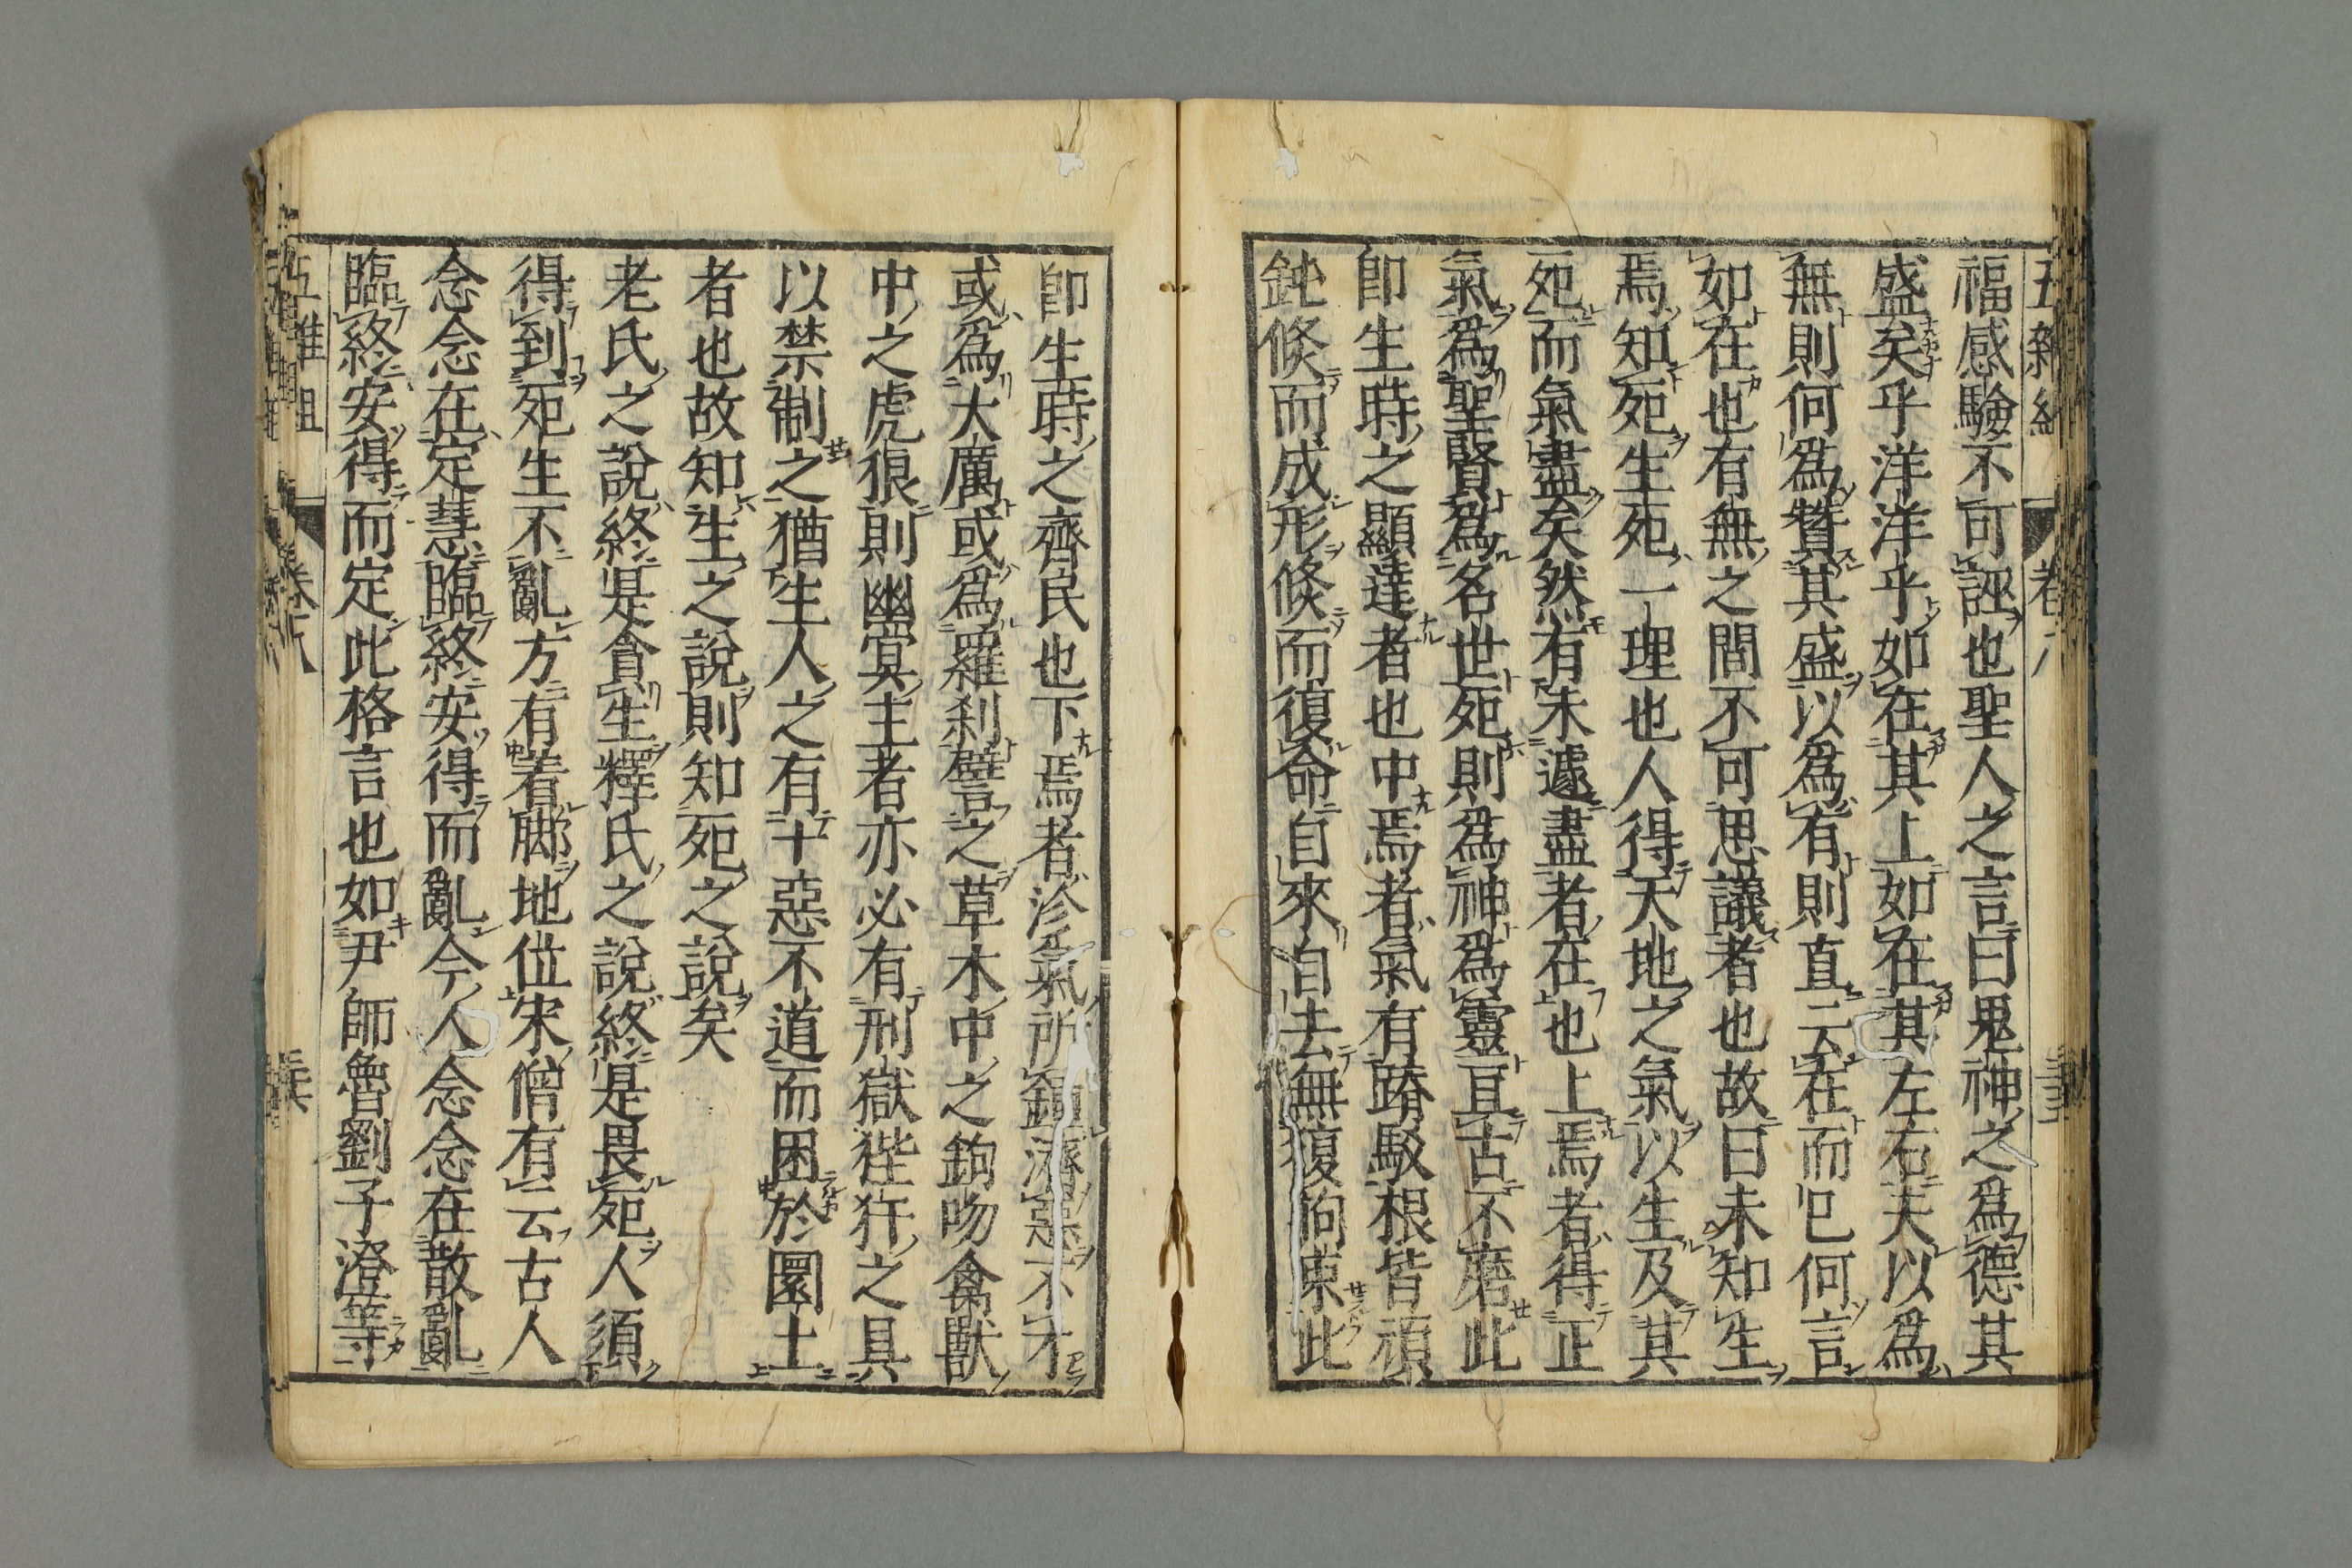 福感驗不可誣也聖人之言曰鬼神之爲德其
盛矣乎洋洋乎如在其上如在其左右夫以爲
無則何爲贊其盛以爲有則直云在而已何言
如在也有無之間不可思議者也故曰未知生
焉知死生死一理也人得天地之氣以生及其
死而氣盡矣然有未遽盡者在也上焉者得正
氣爲聖賢爲名世死則爲神爲靈亘古不磨此
卽生時之顯達者也中焉者氣有蹐駁根皆頑
鈍倏而成形倏而復命自來自去無復拘束此
卽生時之齊民也下焉者沴氣所鍾濟惡不才
或爲大厲或爲羅刹譬之草木中之鉤吻禽獸
中之虎狼則幽冥主者亦必有刑獄狴犴之具
以禁制之猶生人之有十惡不道而困於圜土
者也故知生之說則知死之說矣
老氏之說終是貪生釋氏之說終是畏死人須
得到死生不亂方有着脚地位宋僧有云古人
念念在定慧臨終安得而亂今人念念在散亂
臨終安得而定此格言也如尹師魯劉子澄等